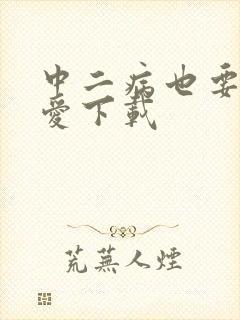 中二病也要
愛下載
荒蕪人煙